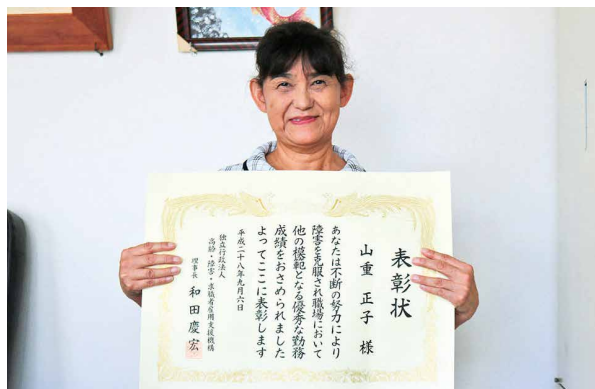 表彰状
山重 正子 様
あなたは不断の努力により
障害を克服され職場において
他の模範となる優秀な勤務
成績をおさめられました
よってここに表彰します
平成二十八年九月六日
独立行政法人
高齢・障害・求職者雇用支援機構
理事長 和田慶宏